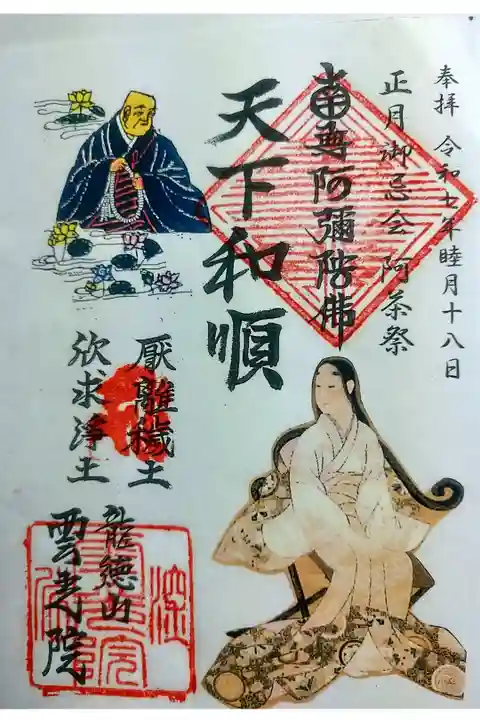 奉拝 令和七年睦月十八日
正月御忌会 阿茶祭
南無阿彌陀佛
天下和順
厭離穢土
欣求浄土
龍徳山
雲光院
深